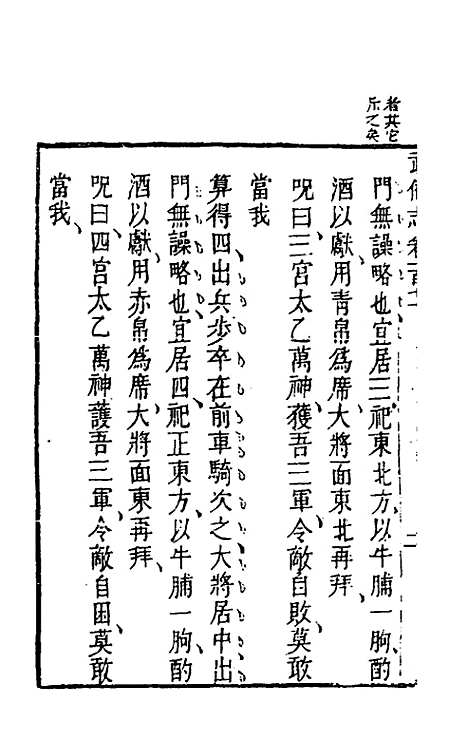 者其它
斥之矣
門無譟略也宜居三祀東北方以牛脯一朐酌
酒以獻用青帛爲席大將面東北再拜
呪曰三宮太乙萬神獲吾三軍令敵自敗莫敢
當我
算得四出兵步卒在前車騎次之大將居中出
門無譟略也宜居四祀正東方以牛脯一朐酌
酒以獻用赤帛爲席大將面東再拜
呪曰四宮太乙萬神護吾三軍令敵自困莫敢
當我